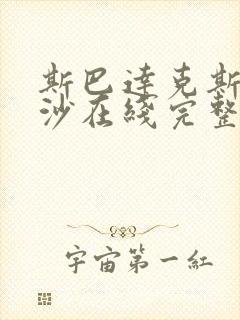 斯巴達克斯
沙在綫完整
宇宙第一紅